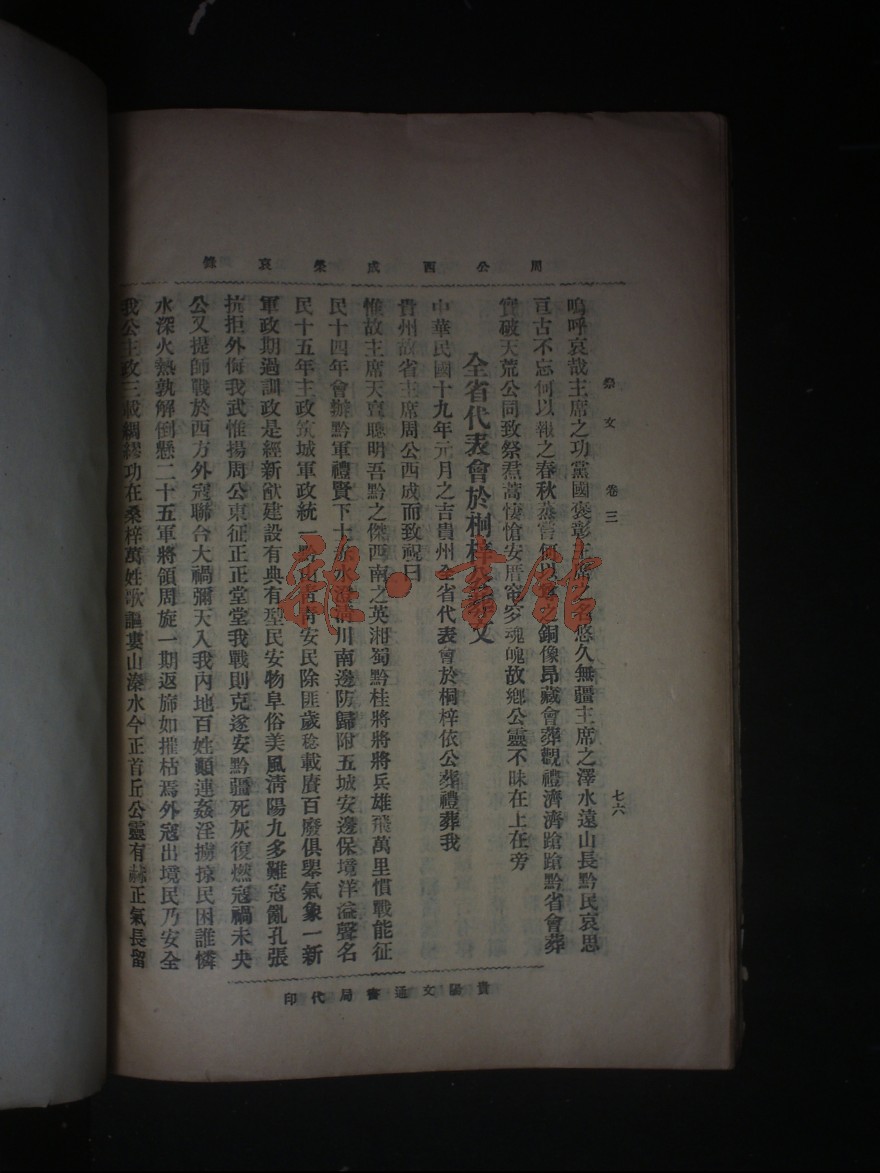 周公西成榮哀錄
祭文 卷三 七六
嗚呼哀哉主席之功黨國褒彰主席之名悠久無疆主席之澤水遠山長黔民哀思
亘古不忘何以報之春秋蒸嘗何以之銅像昂藏會葬觀禮濟濟蹌蹌黔省會葬
實破天荒公同致祭焄蒿悽愴安厝窀穸魂魄故鄉公靈不昧在上在旁
全省代表會於桐梓公葬文
中華民國十九年元月之吉貴州全省代表會於桐梓依公葬禮葬我
貴州故省主席周公西成而致祝曰
惟故主席天賣聰明吾黔之傑西南之英湘蜀黔桂將將將兵雄飛萬里慣戰能征
民十四年會辦黔軍禮賢下士赤水澄清川南邊防歸附五城安邊保境洋溢聲名
民十五年主政筑城軍政統一黔山青青安民除匪歲稔載賡百廢俱舉氣象一新
軍政期過訓政是經新猷建設有典有型民安物阜俗美風清陽九多難寇亂孔張
抗拒外侮我武惟揚周公東征正正堂堂我戰則克遂安黔疆死灰復燃寇禍未央
公又提師戰於西方外寇聯合大禍彌天入我內地百姓顚連姦淫擄掠民困誰憐
水深火熱孰解倒懸二十五軍將領周旋一期返斾如摧枯焉外寇出境民乃安全
我公主政三載綢繆功在桑梓萬姓歌謳婁山溱水今正首丘公靈有赫正氣長留
貴陽文通書局代印
雜·書館